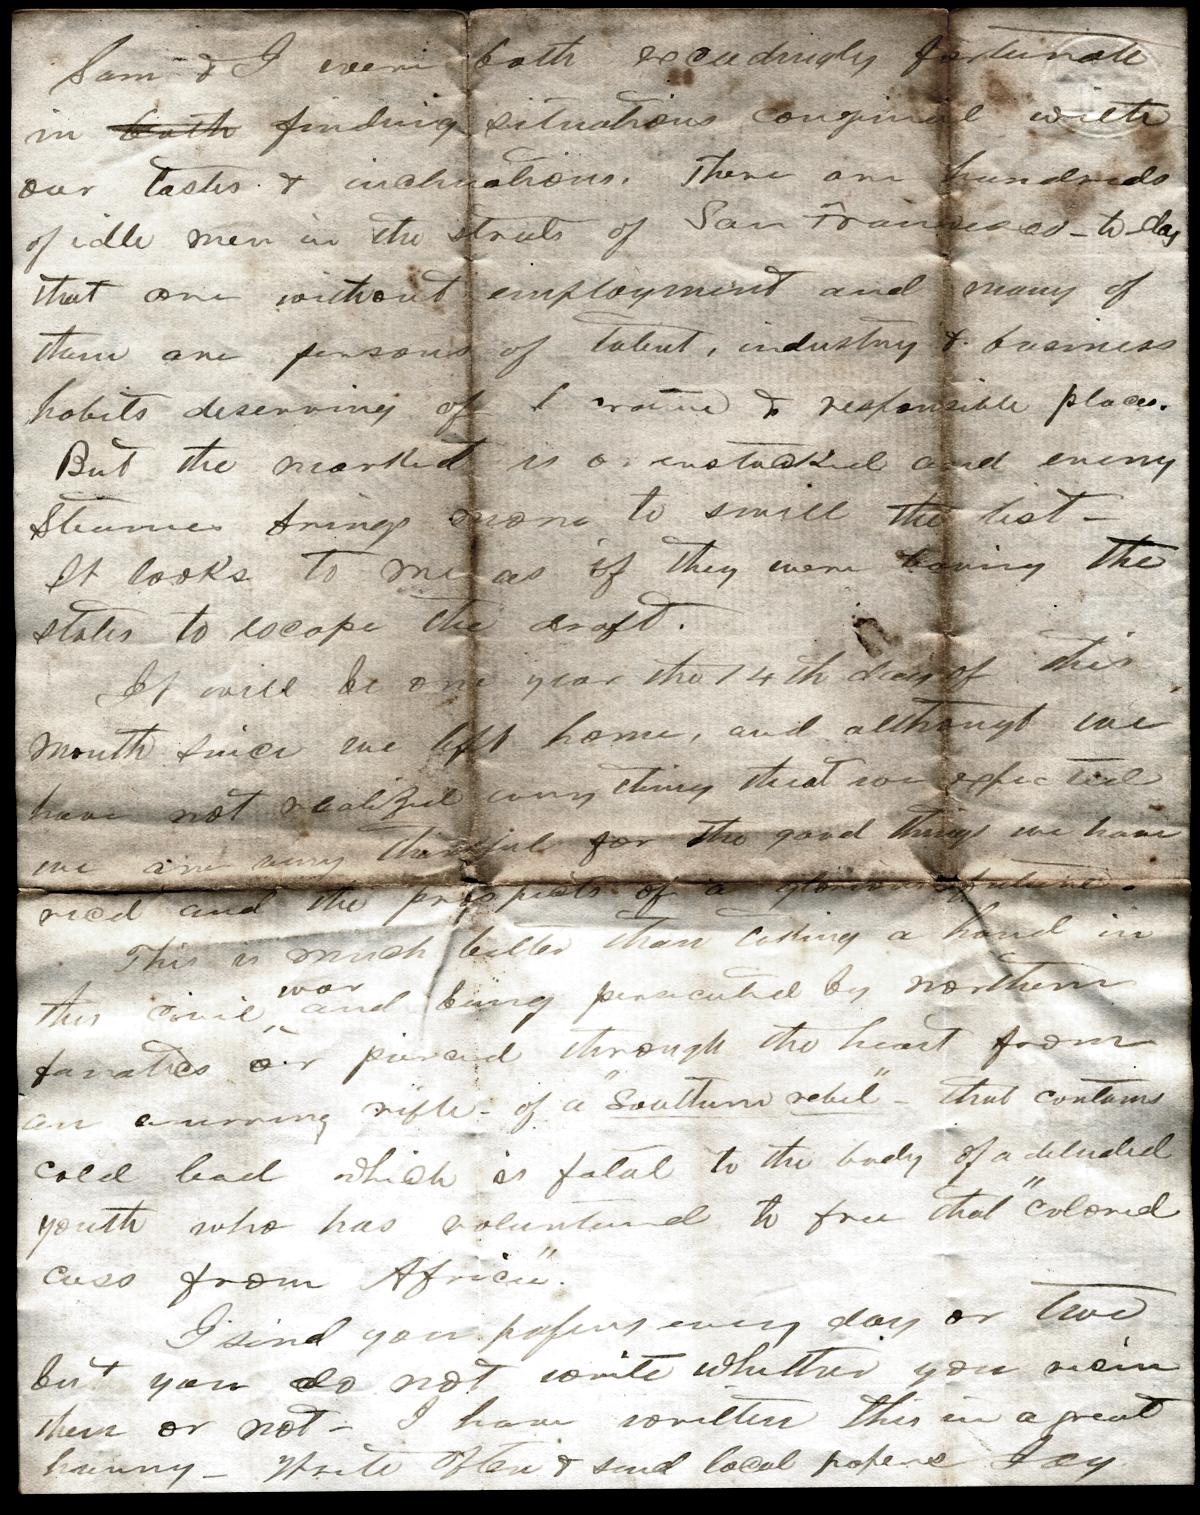 Sam & I were both excedingly fortunate
in both finding situations congineal with
our tastes & inclinations. There are hundreds
of idle men in the streets of San Francisco - to day
that are without employment and many of
them are persons of talent, industry & business
habits deserving of & responsible place.
But the market is overstocked and every
Steamer brings more to swell the list -
It looks to me as if they were leaving the
states to escape the draft.
It will be one year the 14th day of this
month since we left home, and although we
have not realized every thing that we expected
we are very thankful for the good things we have
recd and the prospects of a glorious future.
This is much better than taking a hand in
this civil war and being persecuted by northern
fanatics or pierced through the heart from
an unerring rifle - of a "Southern rebel" - that contains
cold lead which is fatal to the body of a deluded
youth who has volunteered to free that "colored
cuss from Africa".
I send you papers every day or two
but you do not write whether you reciv
them or not - I have written this in a great
hurry - Write often & send local papers Jay